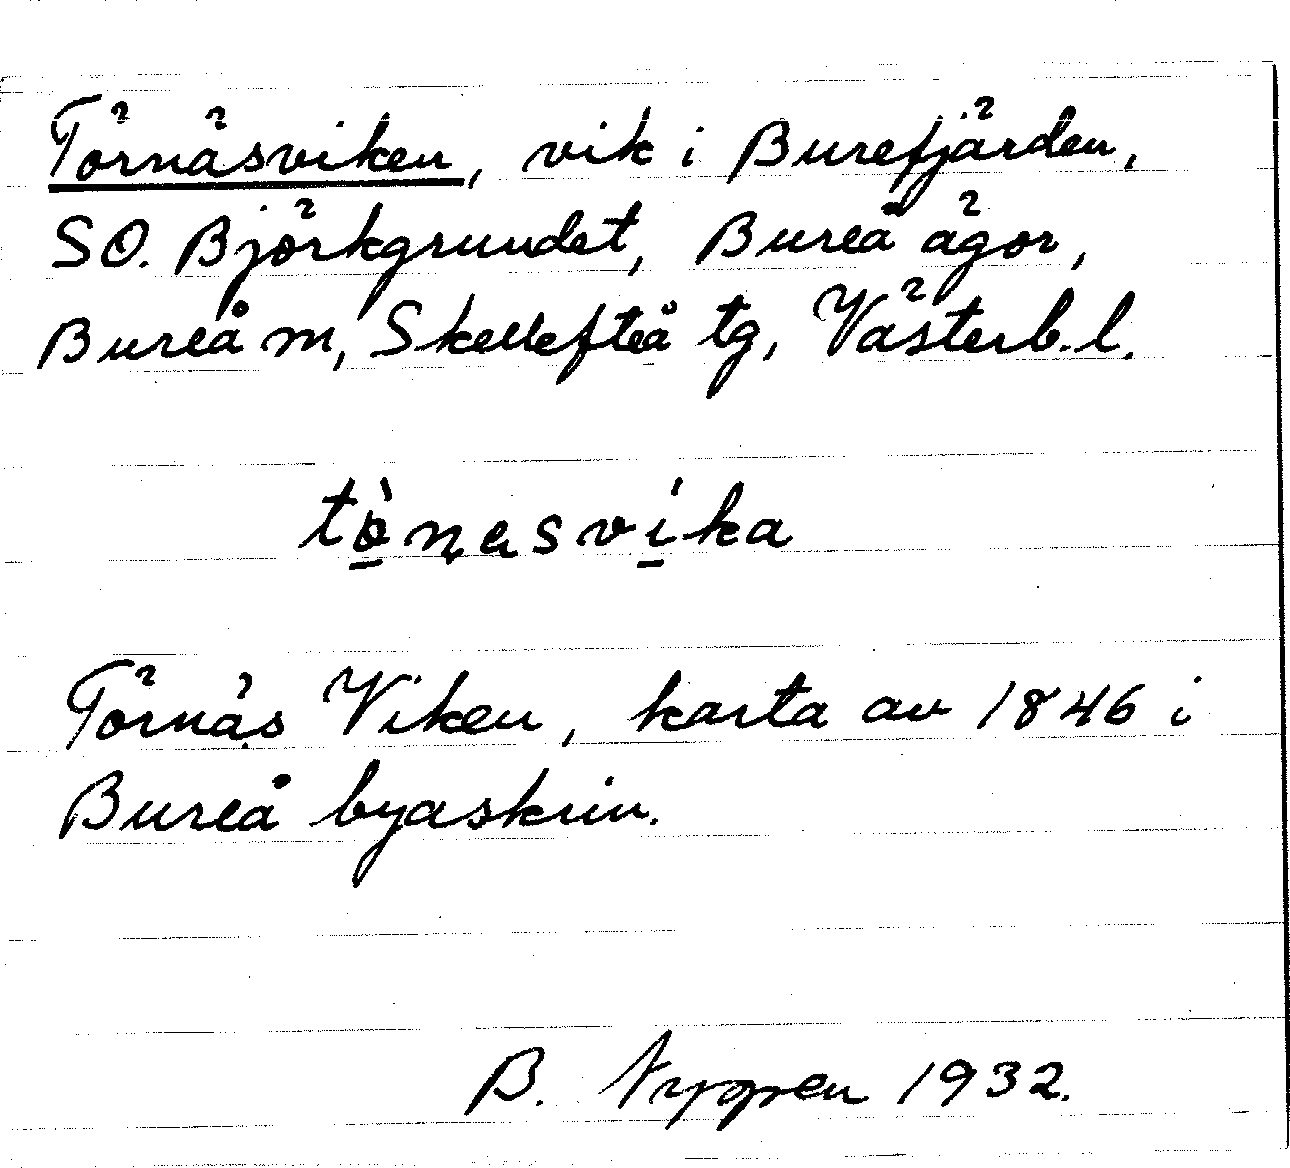 Törnäsviken, vik i Burefjärden,
SO. Björkgrundet, Bureå ägor,
Bureå m, Skellefteå tg, Västerb. l.
tö̀ṇasvíka
Törnäs Viken, karta av 1846 i
Bureå byaskrin.
B. Nygren 1932.